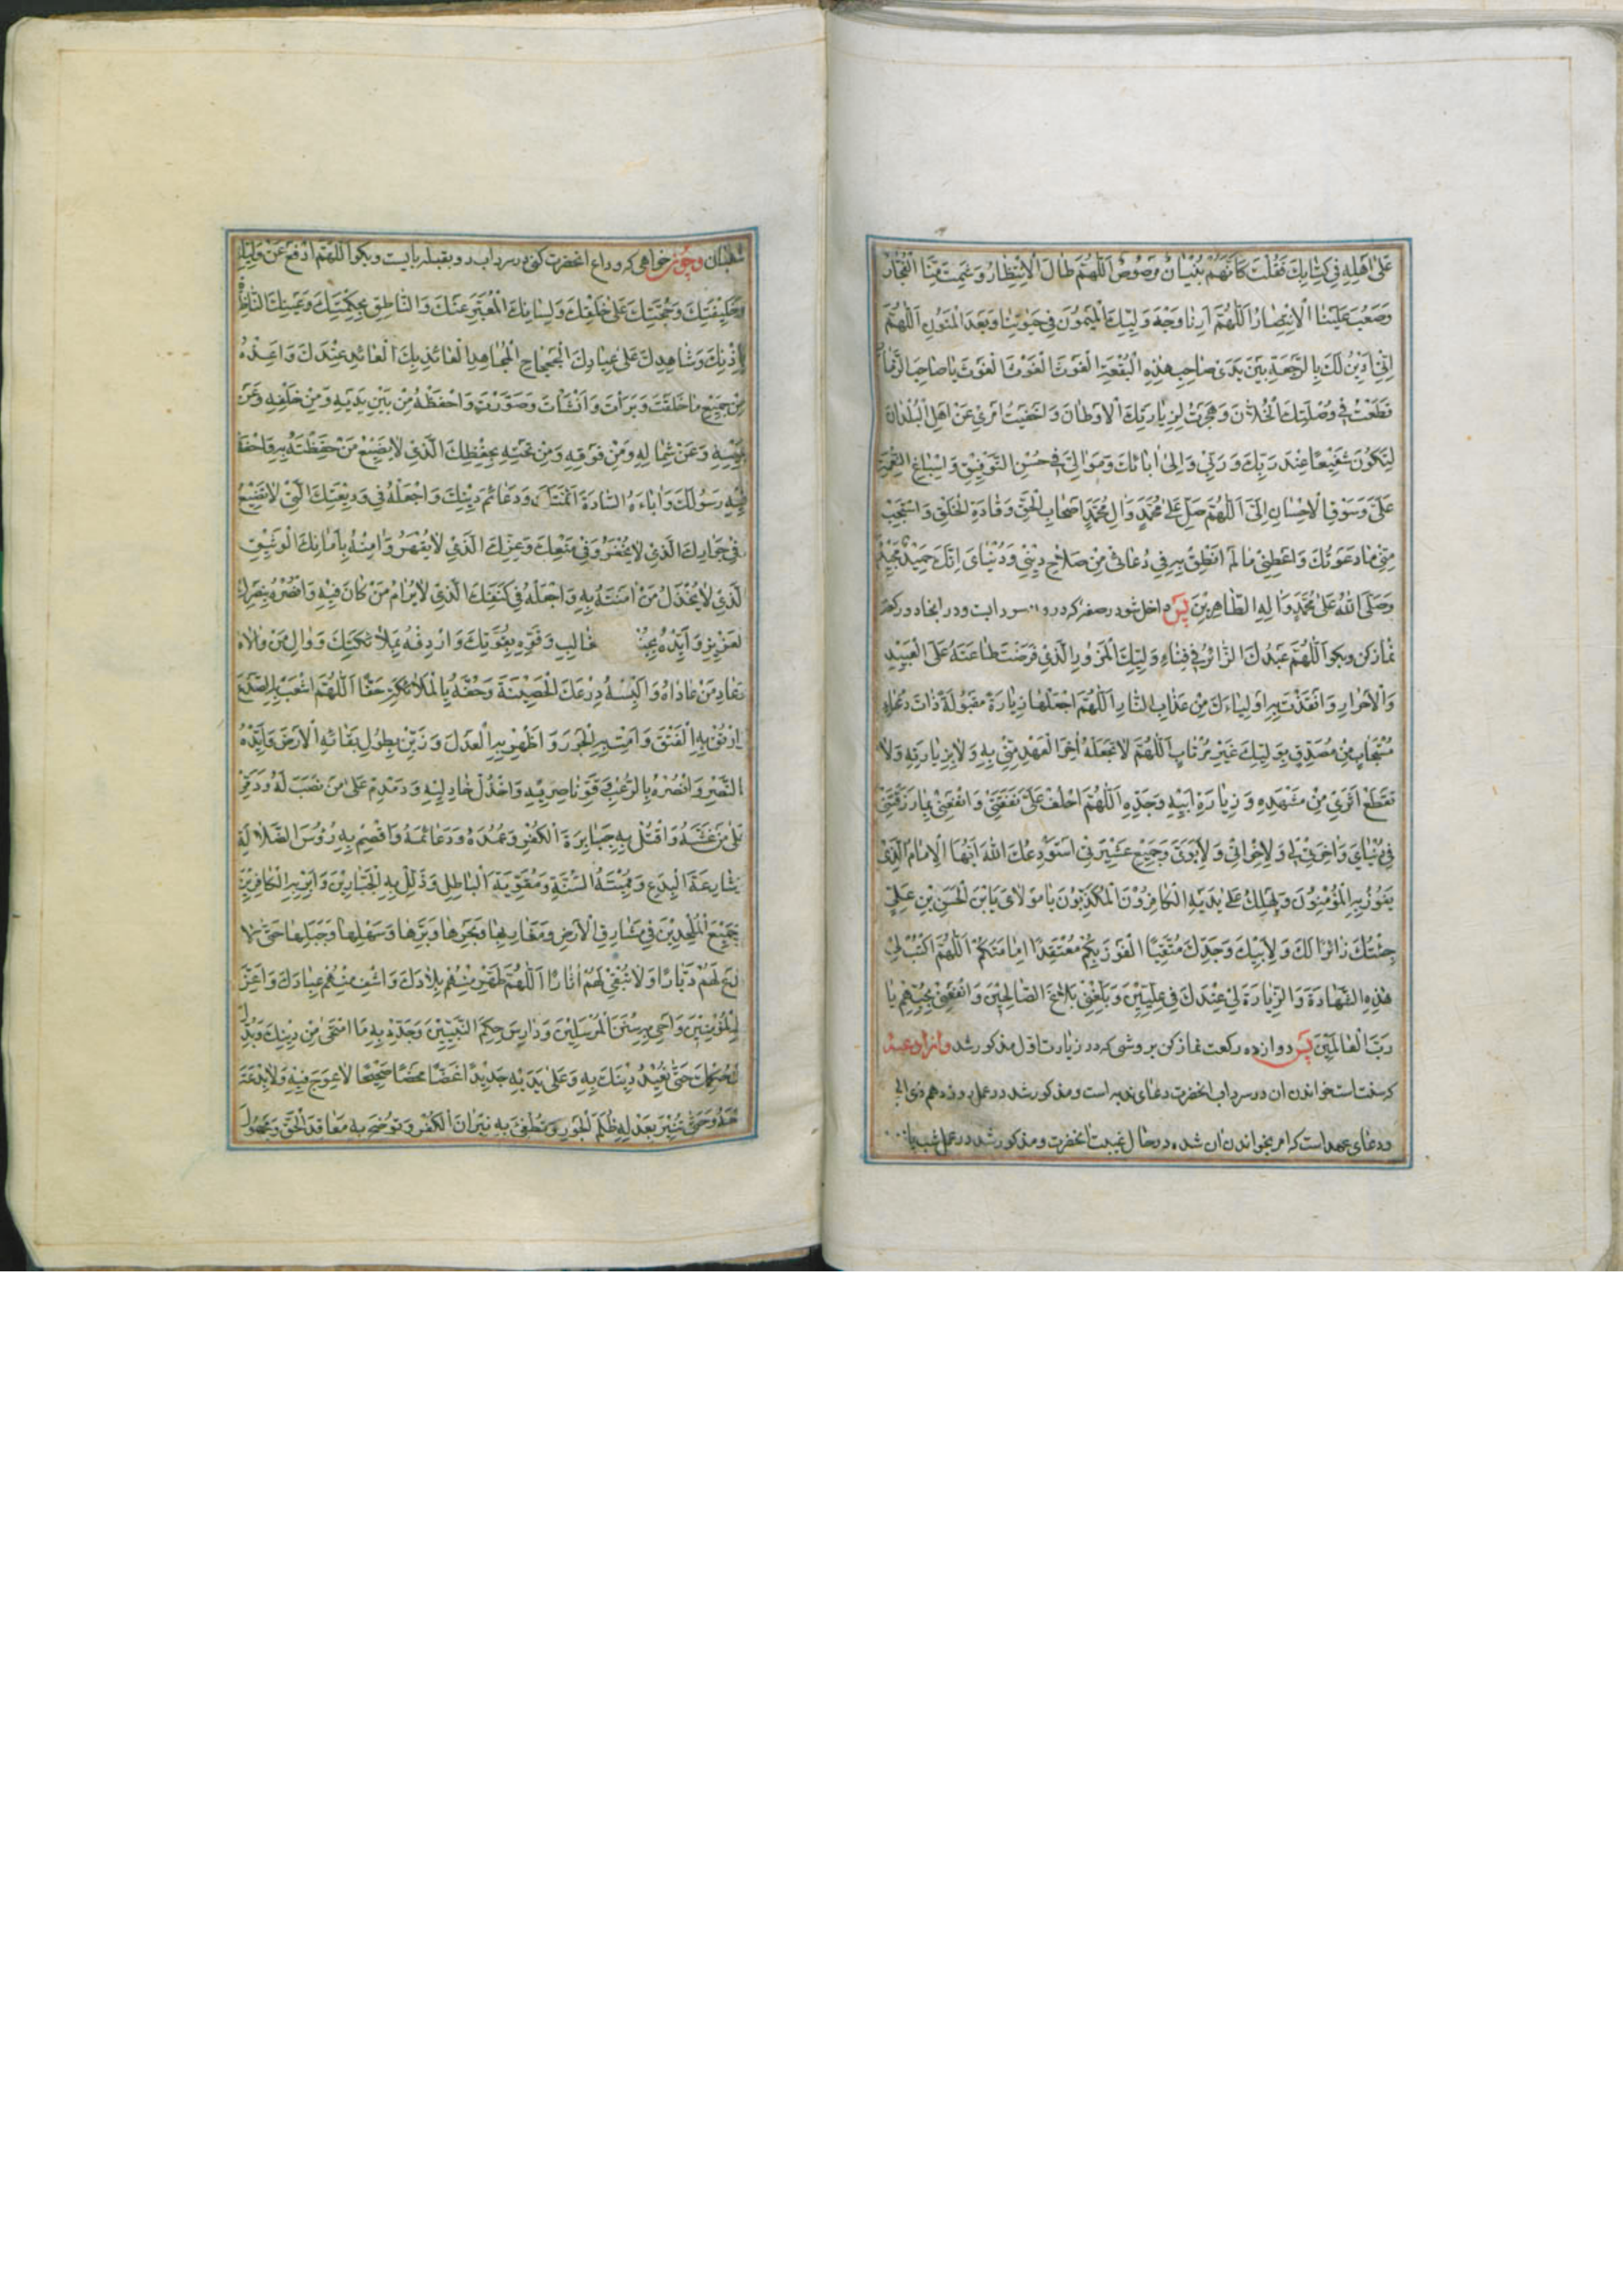 عَلىٰ اَهْلِهِ فِي كِتٰابِكَ فَقُلْتَ كَاَنَّهُمْ بُنْيٰانٌ مَرْصُوصٌ اَللّٰهُمَّ طٰالَ الْاِنْتِظٰارُ وَشَمِتَ مِنَّا الْفُجّٰارُ
وَصَعُبَ عَلَيْنَا الْاِنْتِصٰارُ اَللّٰهُمَّ اَرِنٰا وَجْهَ وَلِيِّكَ الْمَيْمُونَ فِي حَيٰوتِنٰا وَبَعْدَ الْمَنُونِ اَللّٰهُمَّ
اِنّي اَدينُ لَكَ بِالرَّجْعَةِ بَيْنَ يَدَيْ صٰاحِبِ هٰذِهِ الْبُقْعَةِ الْغَوْثَ الْغَوْثَ الْغَوْثَ يٰا صٰاحِبَ الزَّمٰانِ
قَطَعْتُ فِي وُصْلَتِكَ الْخُلّٰانَ وَهَجَرْتُ لِزِيٰارَتِكَ الْاَوْطٰانَ وَاَخْفَيْتُ اَمْري عَنْ اَهْلِ الْبُلْدٰانِ
لِتَكُونَ شَفِيعًا عِنْدَ رَبِّكَ وَرَبّي وَاِلىٰ اٰبٰائِكَ وَمَوٰالِيَّ فِي حُسْنِ التَّوْفيقِ وَاِسْبٰاغِ النِّعْمَةِ
عَلَيَّ وَسَوْقِ الْاِحْسٰانِ اِلَيَّ اَللّٰهُمَّ صَلِّ عَلىٰ مُحَمَّدٍ وَاٰلِ مُحَمَّدٍ اَصْحٰابِ الْحَقِّ وَقٰادَةِ الْخَلْقِ وَاسْتَجِبْ
مِنّي مٰا دَعَوْتُكَ وَاَعْطِني مٰا لَمْ اَنْطِقْ بِهِ فِي دُعٰائي مِنْ صَلٰاحِ ديني وَدُنْيٰايَ اِنَّكَ حَميدٌ مَجيدٌ
وَصَلَّى اللّٰهُ عَلىٰ مُحَمَّدٍ وَاٰلِهِ الطّٰاهِرينَ پس داخل شو در صفه كه درون سردابست و در انجا دو ركعت
نماز كن و بگو اَللّٰهُمَّ عَبْدُكَ الزّٰائِرُ فِي فِنٰاءِ وَلِيِّكَ الْمَزُورِ الَّذي فَرَضْتَ طٰاعَتَهُ عَلَى الْعَبيدِ
وَالْاَحْرٰارِ وَاَنْقَذْتَ بِهِ اَوْلِيٰاءَكَ مِنْ عَذٰابِ النّٰارِ اَللّٰهُمَّ اجْعَلْهٰا زِيٰارَةً مَقْبُولَةً ذٰاتَ دُعٰاءٍ
مُسْتَجٰابٍ مِنْ مُصَدِّقٍ بِوَلِيِّكَ غَيْرِ مُرْتٰابٍ اَللّٰهُمَّ لٰا تَجْعَلْهُ اٰخِرَ الْعَهْدِ مِنّي بِهِ وَلٰا بِزِيٰارَتِهِ وَلٰا
تَقْطَعْ اَثَري مِنْ مَشْهَدِهِ وَزِيٰارَةِ اَبيهِ وَجَدِّهِ اَللّٰهُمَّ اخْلُفْ عَلَيَّ نَفَقَتي وَانْفَعْني بِمٰا رَزَقْتَني
فِي دُنْيٰايَ وَاٰخِرَتي لي وَلِاِخْوٰاني وَلِاَبَوَيَّ وَجَميعِ عِتْرَتي اَسْتَوْدِعُكَ اللّٰهَ اَيُّهَا الْاِمٰامُ الَّذي
يَفُوزُ بِهِ الْمُؤْمِنُونَ وَيَهْلِكُ عَلىٰ يَدَيْهِ الْكٰافِرُونَ الْمُكَذِّبُونَ يٰا مَوْلٰايَ يَابْنَ الْحَسَنِ بْنِ عَلِيٍّ
جِئْتُكَ زٰائِرًا لَكَ وَلِاَبيكَ وَجَدِّكَ مُتَيَقِّنًا الْفَوْزَ بِكُمْ مُعْتَقِدًا اِمٰامَتَكُمْ اَللّٰهُمَّ اكْتُبْ لي
هٰذِهِ الشَّهٰادَةَ وَالزِّيٰارَةَ لي عِنْدَكَ فِي عِلِّيّينَ وَبَلِّغْني بَلٰاغَ الصّٰالِحينَ وَانْفَعْني بِحُبِّهِمْ يٰا
رَبَّ الْعٰالَمينَ پس دوازده ركعت نماز كن بروشى كه در زيارت اول مذكور شد و از ادعيه
كه سنت است خواندن ان در سرداب انحضرت دعاى ندبه است و مذكور شد در عمل روز دهم ذى الحجه
و دعاى عهد است كه امر بخواندن ان شده در حال غيبت انحضرت و مذكور شد در عمل شب نيمه
شعبان و چون خواهى كه وداع انحضرت كنى در سرداب رو بقبله بايست و بگو اَللّٰهُمَّ ادْفَعْ عَنْ وَلِيِّكَ
وَخَليفَتِكَ وَحُجَّتِكَ عَلىٰ خَلْقِكَ وَلِسٰانِكَ الْمُعَبِّرِ عَنْكَ وَالنّٰاطِقِ بِحِكْمَتِكَ وَعَيْنِكَ النّٰاظِرَةِ
بِاِذْنِكَ وَشٰاهِدِكَ عَلىٰ عِبٰادِكَ الْجَحْجٰاحِ الْمُجٰاهِدِ الْعٰائِذِ بِكَ الْعٰابِدِ عِنْدَكَ وَاَعِذْهُ
مِنْ جَميعِ مٰا خَلَقْتَ وَبَرَأْتَ وَاَنْشَأْتَ وَصَوَّرْتَ وَاحْفَظْهُ مِنْ بَيْنِ يَدَيْهِ وَمِنْ خَلْفِهِ وَعَنْ
يَمينِهِ وَعَنْ شِمٰالِهِ وَمِنْ فَوْقِهِ وَمِنْ تَحْتِهِ بِحِفْظِكَ الَّذي لٰا يَضيعُ مَنْ حَفِظْتَهُ بِهِ وَاحْفَظْ
فيهِ رَسُولَكَ وَاٰبٰاءَهُ السّٰادَةَ اَئِمَّتَكَ وَدَعٰائِمَ دينِكَ وَاجْعَلْهُ فِي وَديعَتِكَ الَّتي لٰا تَضيعُ
وَفِي جِوٰارِكَ الَّذي لٰا يُخْفَرُ وَفِي مَنْعِكَ وَعِزِّكَ الَّذي لٰا يُقْهَرُ وَاٰمِنْهُ بِاَمٰانِكَ الْوَثيقِ
الَّذي لٰا يُخْذَلُ مَنْ اٰمَنْتَهُ بِهِ وَاجْعَلْهُ فِي كَنَفِكَ الَّذي لٰا يُرٰامُ مَنْ كٰانَ فيهِ وَانْصُرْهُ بِنَصْرِكَ
الْعَزيزِ وَاَيِّدْهُ غٰالِبِ وَقَوِّهِ بِقُوَّتِكَ وَاَرْدِفْهُ بِمَلٰائِكَتِكَ وَوٰالِ مَنْ وٰالٰاهُ
وَعٰادِ مَنْ عٰادٰاهُ وَاَلْبِسْهُ دِرْعَكَ الْحَصينَةَ وَحُفَّهُ بِالْمَلٰائِكَةِ حَفًّا اَللّٰهُمَّ اشْعَبْ بِهِ الصَّدْعَ
وَارْتُقْ بِهِ الْفَتْقَ وَاَمِتْ بِهِ الْجَوْرَ وَاَظْهِرْ بِهِ الْعَدْلَ وَزَيِّنْ بِطُولِ بَقٰائِهِ الْاَرْضَ وَاَيِّدْهُ
بِالنَّصْرِ وَانْصُرْهُ بِالرُّعْبِ وَقَوِّ نٰاصِريهِ وَاخْذُلْ خٰاذِليهِ وَدَمْدِمْ عَلىٰ مَنْ نَصَبَ لَهُ وَدَمِّرْ
عَلىٰ مَنْ غَشَّهُ وَاقْتُلْ بِهِ جَبٰابِرَةَ الْكُفْرِ وَعُمُدَهُ وَدَعٰائِمَهُ وَاقْصِمْ بِهِ رُؤُسَ الضَّلٰالَةِ
وَشٰارِعَةَ الْبِدَعِ وَمُميتَةَ السُّنَّةِ وَمُقَوِّيَةَ الْبٰاطِلِ وَذَلِّلْ بِهِ الْجَبّٰارينَ وَاَبِرْ بِهِ الْكٰافِرينَ
وَجَميعَ الْمُلْحِدينَ فِي مَشٰارِقِ الْاَرْضِ وَمَغٰارِبِهٰا وَبَحْرِهٰا وَبَرِّهٰا وَسَهْلِهٰا وَجَبَلِهٰا حَتّىٰ لٰا
تَدَعَ لَهُمْ دَيّٰارًا وَلٰا تُبْقِيَ لَهُمْ اٰثٰارًا اَللّٰهُمَّ طَهِّرْ مِنْهُمْ بِلٰادَكَ وَاشْفِ مِنْهُمْ عِبٰادَكَ وَاَعِزَّ
بِهِ الْمُؤْمِنينَ وَاَحْيِ بِهِ سُنَنَ الْمُرْسَلينَ وَدٰارِسَ حِكَمِ النَّبِيّينَ وَجَدِّدْ بِهِ مَا امْتَحىٰ مِنْ دينِكَ وَبُدِّلَ
مِنْ حُكْمِكَ حَتّىٰ تُعيدَ دينَكَ بِهِ وَعَلىٰ يَدَيْهِ جَديدًا غَضًّا مَحْضًا صَحيحًا لٰا عِوَجَ فيهِ وَلٰا بِدْعَةَ
مَعَهُ وَحَتّىٰ تُنيرَ بِعَدْلِهِ ظُلَمَ الْجَوْرِ وَتُطْفِئَ بِهِ نيرٰانَ الْكُفْرِ وَتُوضِحَ بِهِ مَعٰاقِدَ الْحَقِّ وَمَجْهُولَ